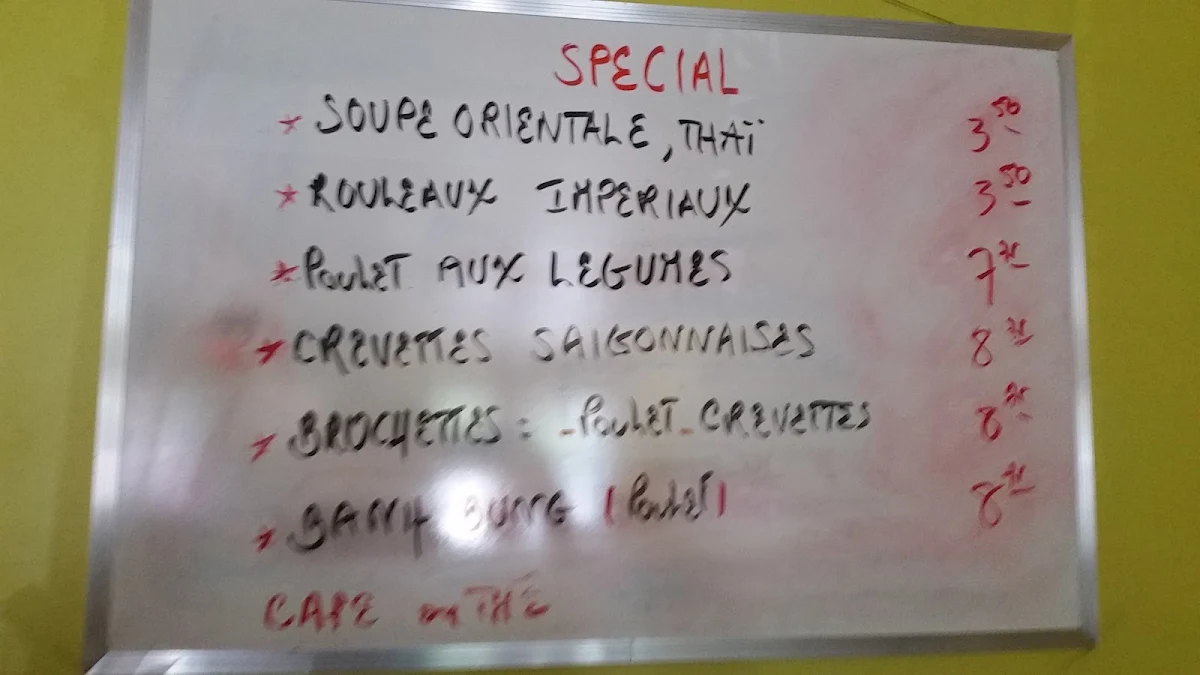 SPECIAL
* SOUPE ORIENTALE, THAÏ 3.50
* ROULEAUX IMPERIAUX 3.50
* POULET AUX LEGUMES 7.75
* CREVETTES SAIGONNAISES 8
* BROCHETTES : - POULET - CREVETTES 8
* BANH BUNG (POULET) 8
CAFE ou THE